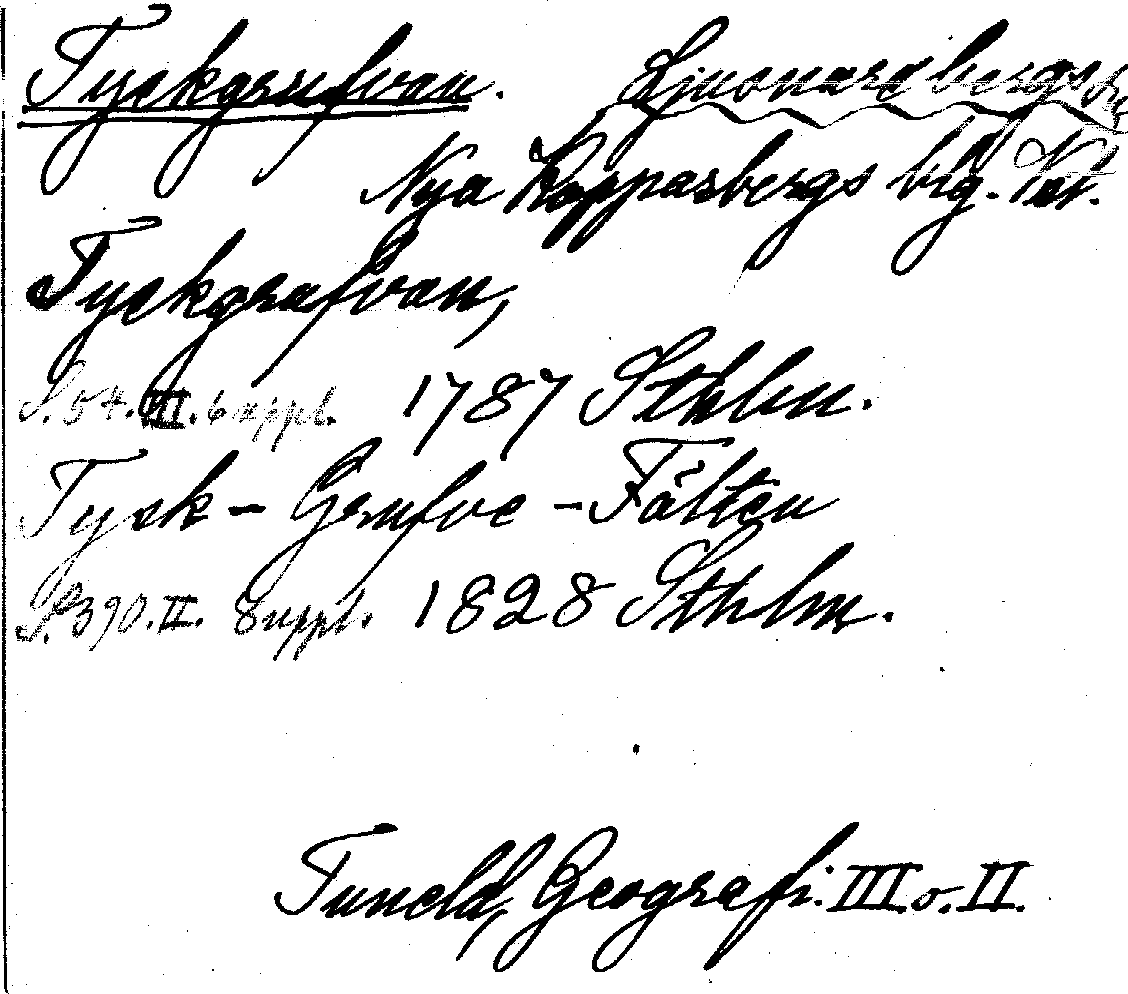 Tyskgrufvan. Ljusnarsbergs sn
Nya Kopparbergs blg. Vst.
Tyskgrufvan,
S. 54. III. suppl. 1787 Sthlm.
Tysk-Grufve-Fälten
S. 390. II. Suppl. 1828 Sthlm.
Tuneld, Geografi. III o. II.